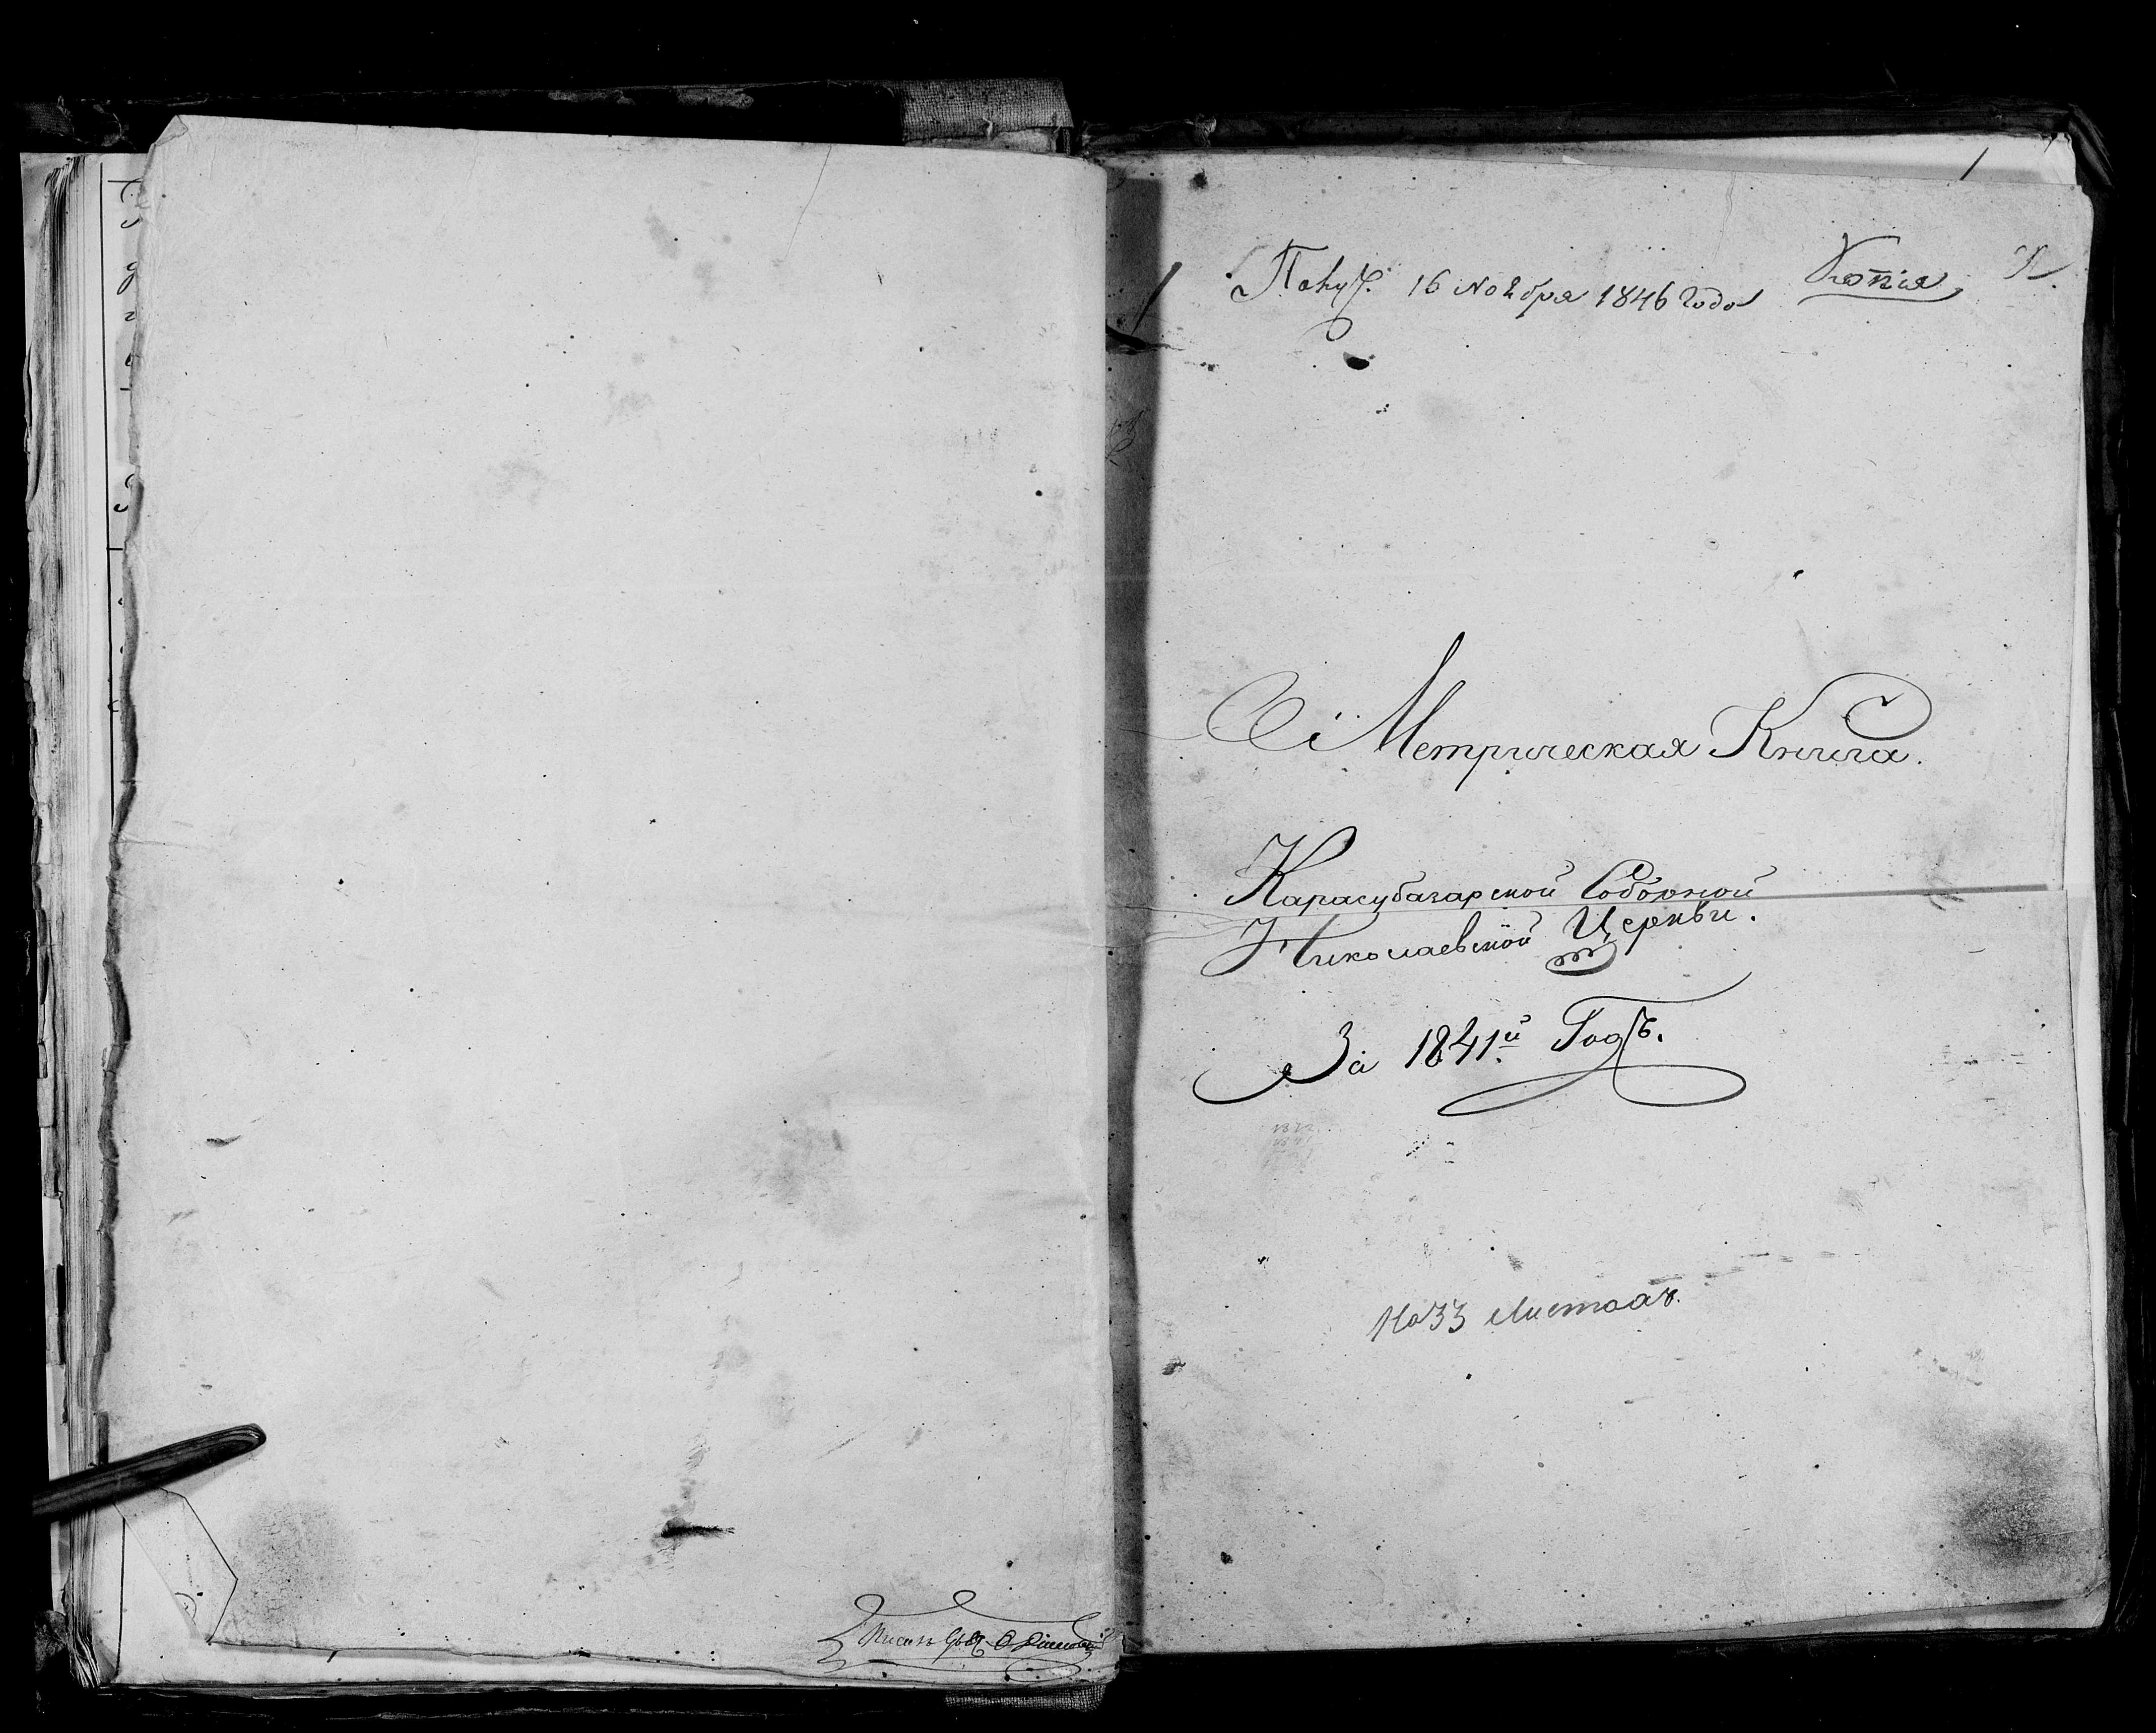 1
16 Ноября 1846 Года Копія
Метрическая Книга.
Карасубазарской Соборной
Николаевской Церкви.
За 1841й Годъ.
На 33 листахъ.